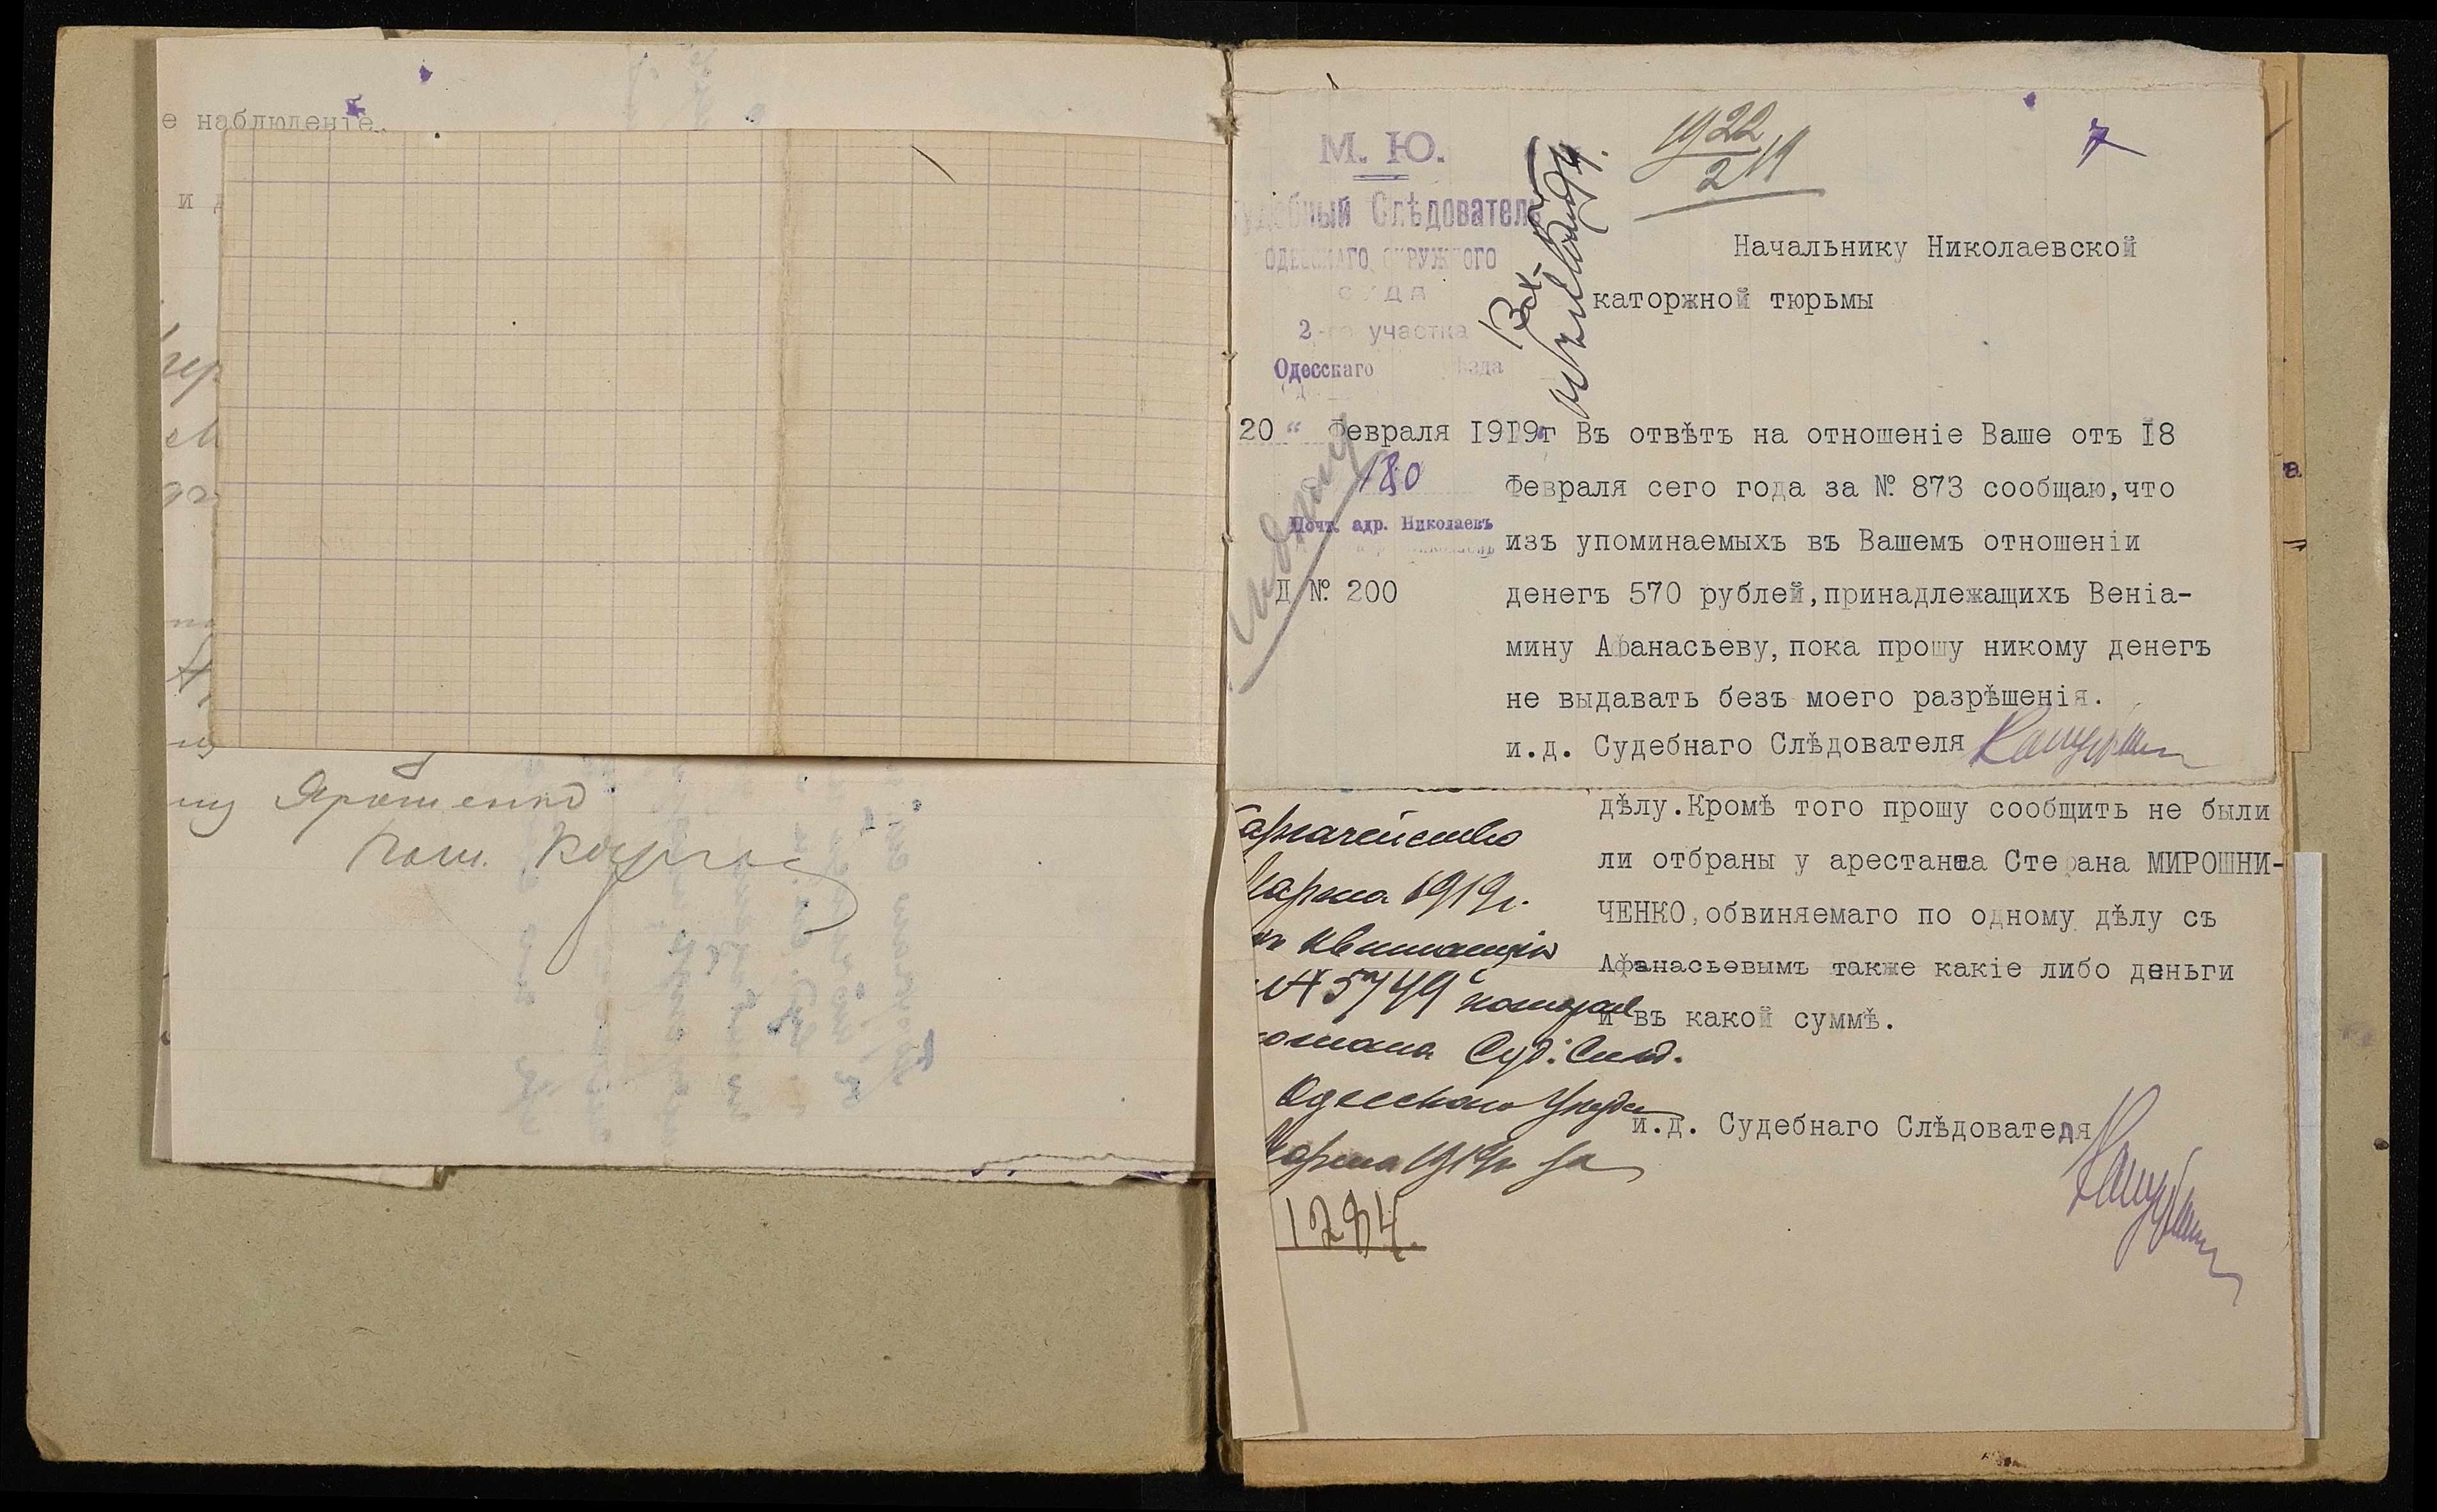 е наблюденіе.
и д
му Ярошенко
Пом.
7
1922
2/II
М. Ю.
Судебный Слѣдователь
Одесскаго Окружного
Суда
2-го участка
Одесскаго уѣзда
Начальнику Николаевской
каторжной тюрьмы
20 " Февраля 1919г
180
Почт. адр. Николаевъ
Д № 200
Въ отвѣтъ на отношеніе Ваше отъ I8
Февраля сего года за № 873 сообщаю,что
изъ упоминаемыхъ въ Вашемъ отношеніи
денегъ 570 рублей,принадлежащихъ Веніа-
мину Афанасьеву,пока прошу никому денегъ
не выдавать безъ моего разрѣшенія.
и.д. Судебнаго Слѣдователя
дѣлу.Кромѣ того прошу сообщить не были
ли отбраны у арестанта Стефана МИРОШНИ-
ЧЕНКО,обвиняемаго по одному дѣлу съ
Афанасьевымъ также какіе либо деньги
и въ какой суммѣ.
и.д. Судебнаго Слѣдователя
азначейство
арта 1919г.
квитанція
№ 5749 которая
Суд. Слѣд.
Одесскаго Уѣзда
арта 1919г за
1284.
а